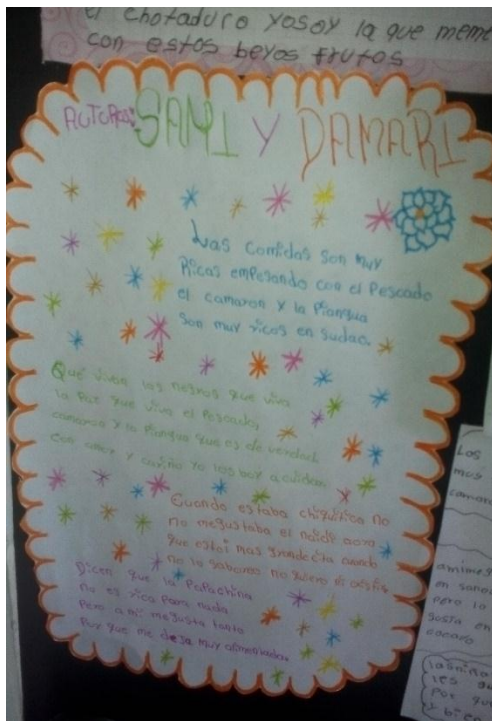 el chotaduro yosoy la que meme
con estos beyos frutos
AUTORAS:
SAMI Y DAMARI
Las comidas son muy
Ricas empesando con el Pescado
el camaron y la Piangua
son muy ricos en sudao.
Que vivan los negros que viva
la Paz que viva el Pescado
camaron y la Piangua que es de verdad
Con amor y cariño yo los boy a
Cuando estaba chiquitica no
no megustaba el naidi aora
que estoi mas grandecita cuando
no lo saboreo no quiero ni
Dicen que la Papachina
no es rica para nada
Pero a mi megusta tanto
Por que me deja muy alimentada
Los
mas
camaron
amimeg
en
Pero lo
gosta en
les
Por que